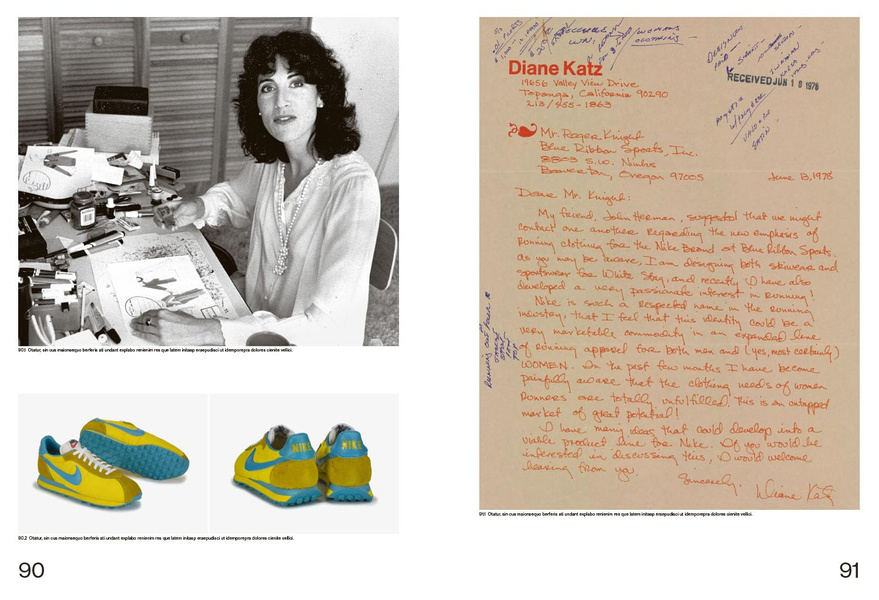 90.1 Otatur, sin cus maionsequo berferis ati undant explabo renienim res que latem initasp ersepudisci ut idemporepra dolores cienite vellici.
NIKE
NIKE
90.2 Otatur, sin cus maionsequo berferis ati undant explabo renienim res que latem initasp ersepudisci ut idemporepra dolores cienite vellici.
90
RECEIVED JUN 16 1978
Diane Katz
19656 Valley View Drive
Topanga, California 90290
213/455-1863
Mr. Roger Knight
Blue Ribbon Sports, Inc.
8805 S.W. Nimbs
Beaverton, Oregon 97005
June 13, 1978
Dear Mr. Knight:
My friend, John Herman, suggested that we might
contact one another regarding the new emphasis of
Running clothing for the Nike Brand at Blue Ribbon Sports.
As you may be aware, I am designing both skiwear and
sportswear for White Stag, and recently I have also
developed a very passionate interest in running!
Nike is such a respected name in the running
industry, that I feel that this identity could be a
very marketable commodity in an expanded line
of running apparel for both men and (yes, most certainly)
WOMEN. In the past few months I have become
painfully aware that the clothing needs of women
runners are totally unfulfilled. This is an untapped
market of great potential!
I have many ideas that could develop into a
viable product line for Nike. If you would be
interested in discussing this, I would welcome
hearing from you.
Sincerely,
Diane Katz
91.1 Otatur, sin cus maionsequo berferis ati undant explabo renienim res que latem initasp ersepudisci ut idemporepra dolores cienite vellici.
91